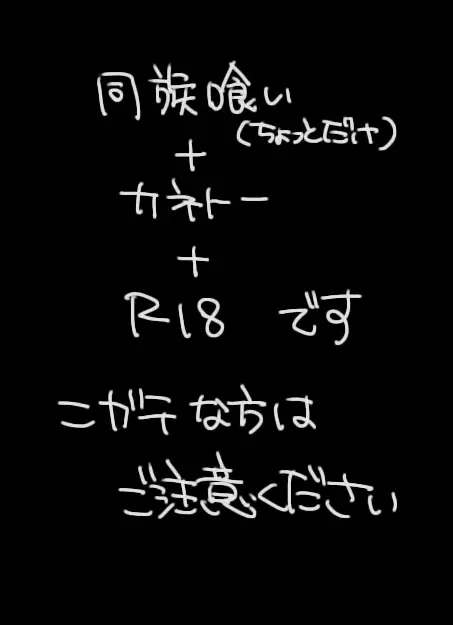 同族喰い
(ちょっとだけ)
+
カネトー
+
R18 です
ニガテな方は
ご注意ください